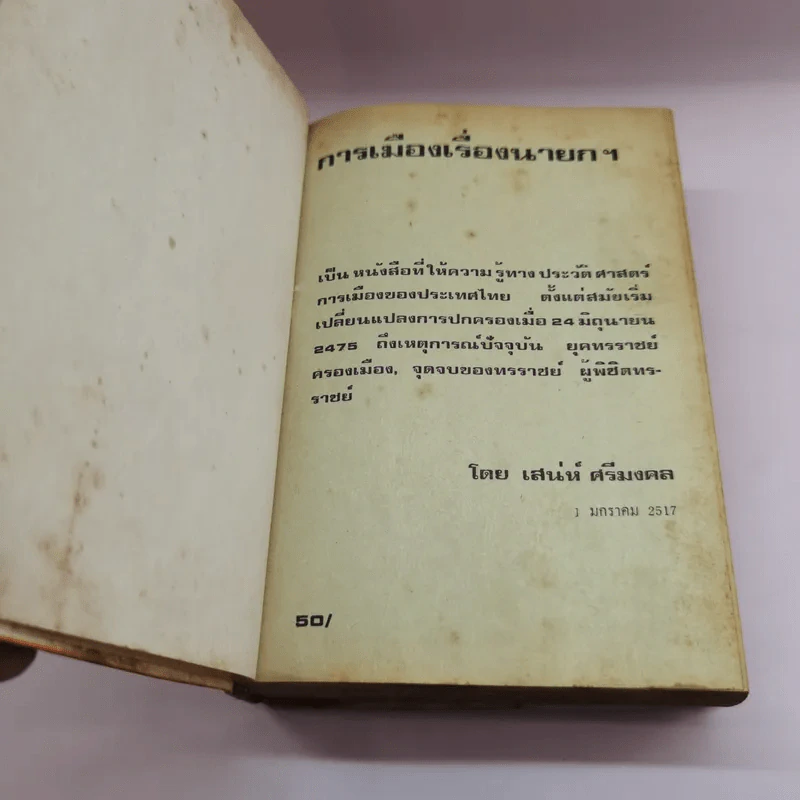 การเมืองเรื่องนายกฯ
เป็นหนังสือที่ให้ความรู้ทางประวัติศาสตร์
การเมืองของประเทศไทย ตั้งแต่สมัยเริ่ม
เปลี่ยนแปลงการปกครองเมื่อ 24 มิถุนายน
2475 ถึงเหตุการณ์ปัจจุบัน ยุคทรราชย์
ครองเมือง, จุดจบของทรราชย์ ผู้พิชิตทร-
ราชย์
โดย เสน่ห์ ศรีมงคล
1 มกราคม 2517
50/